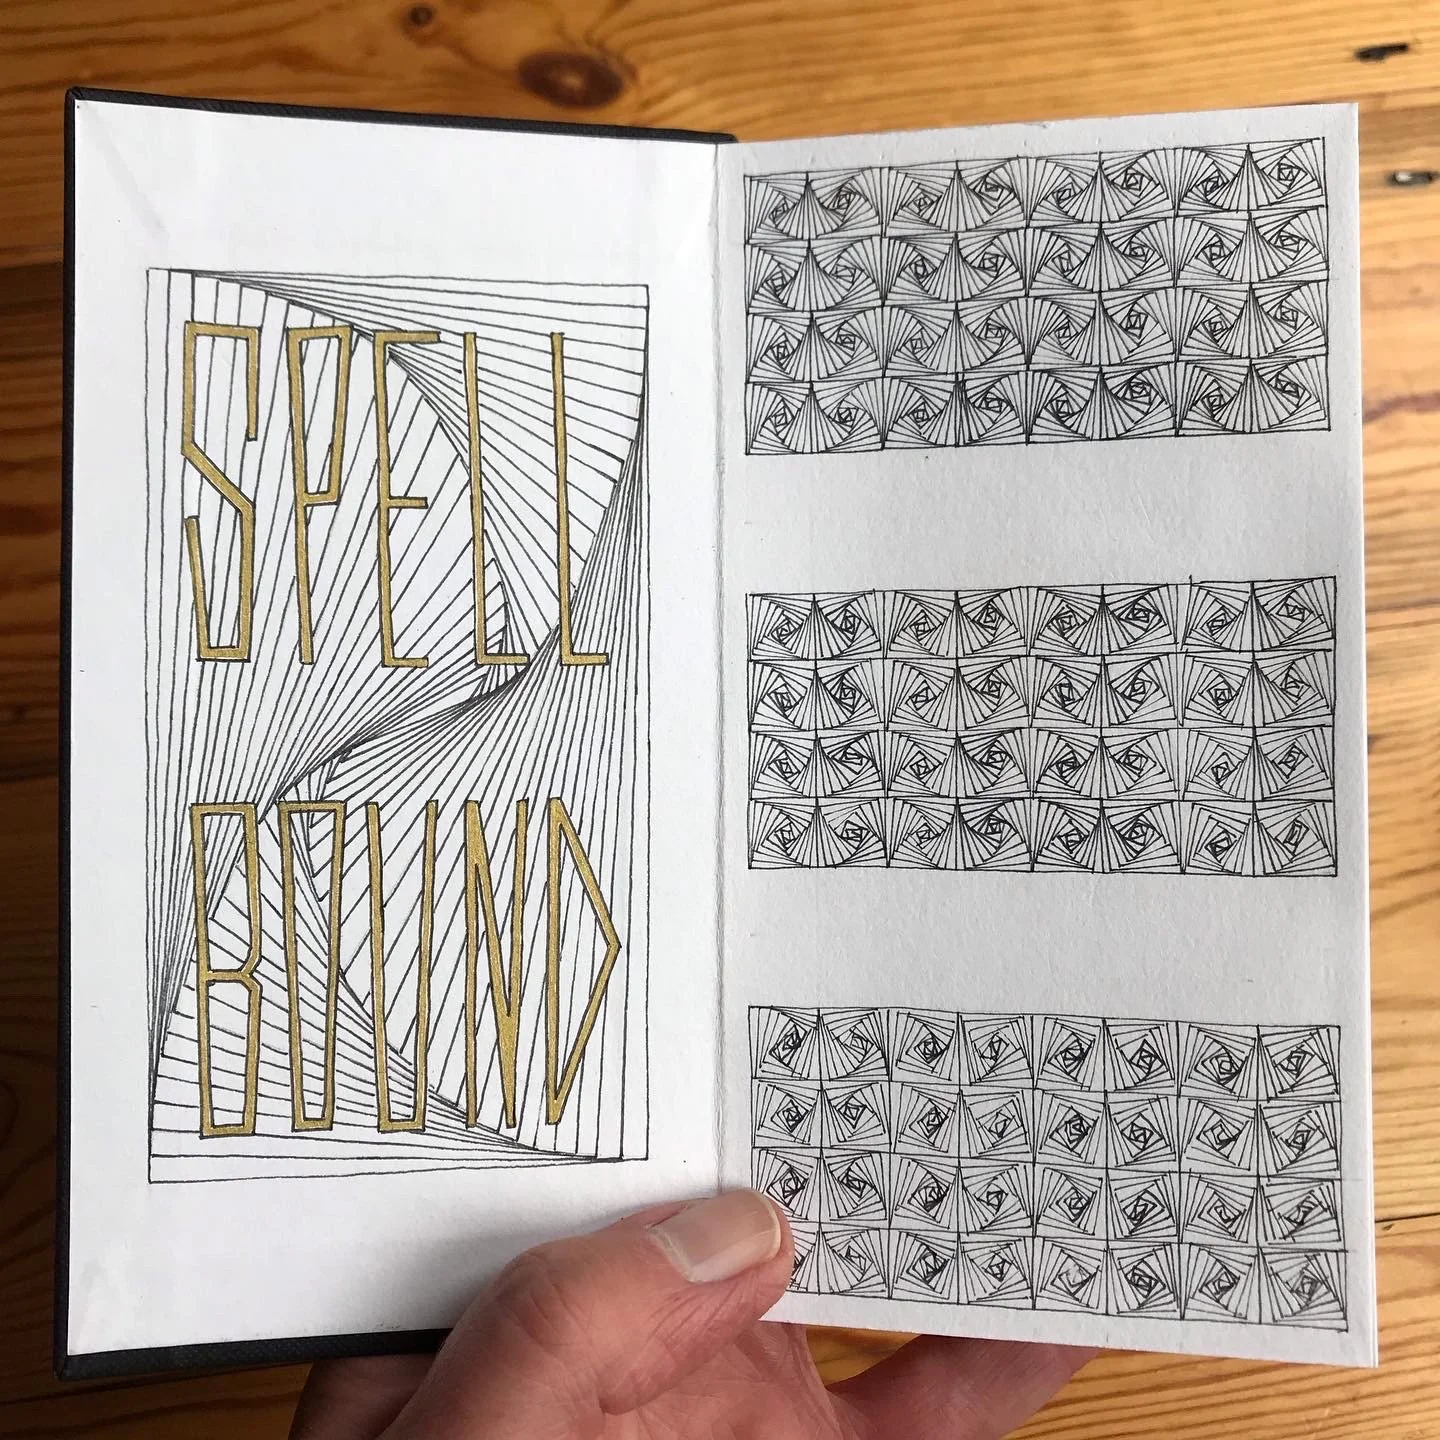 SPELL
BOUND